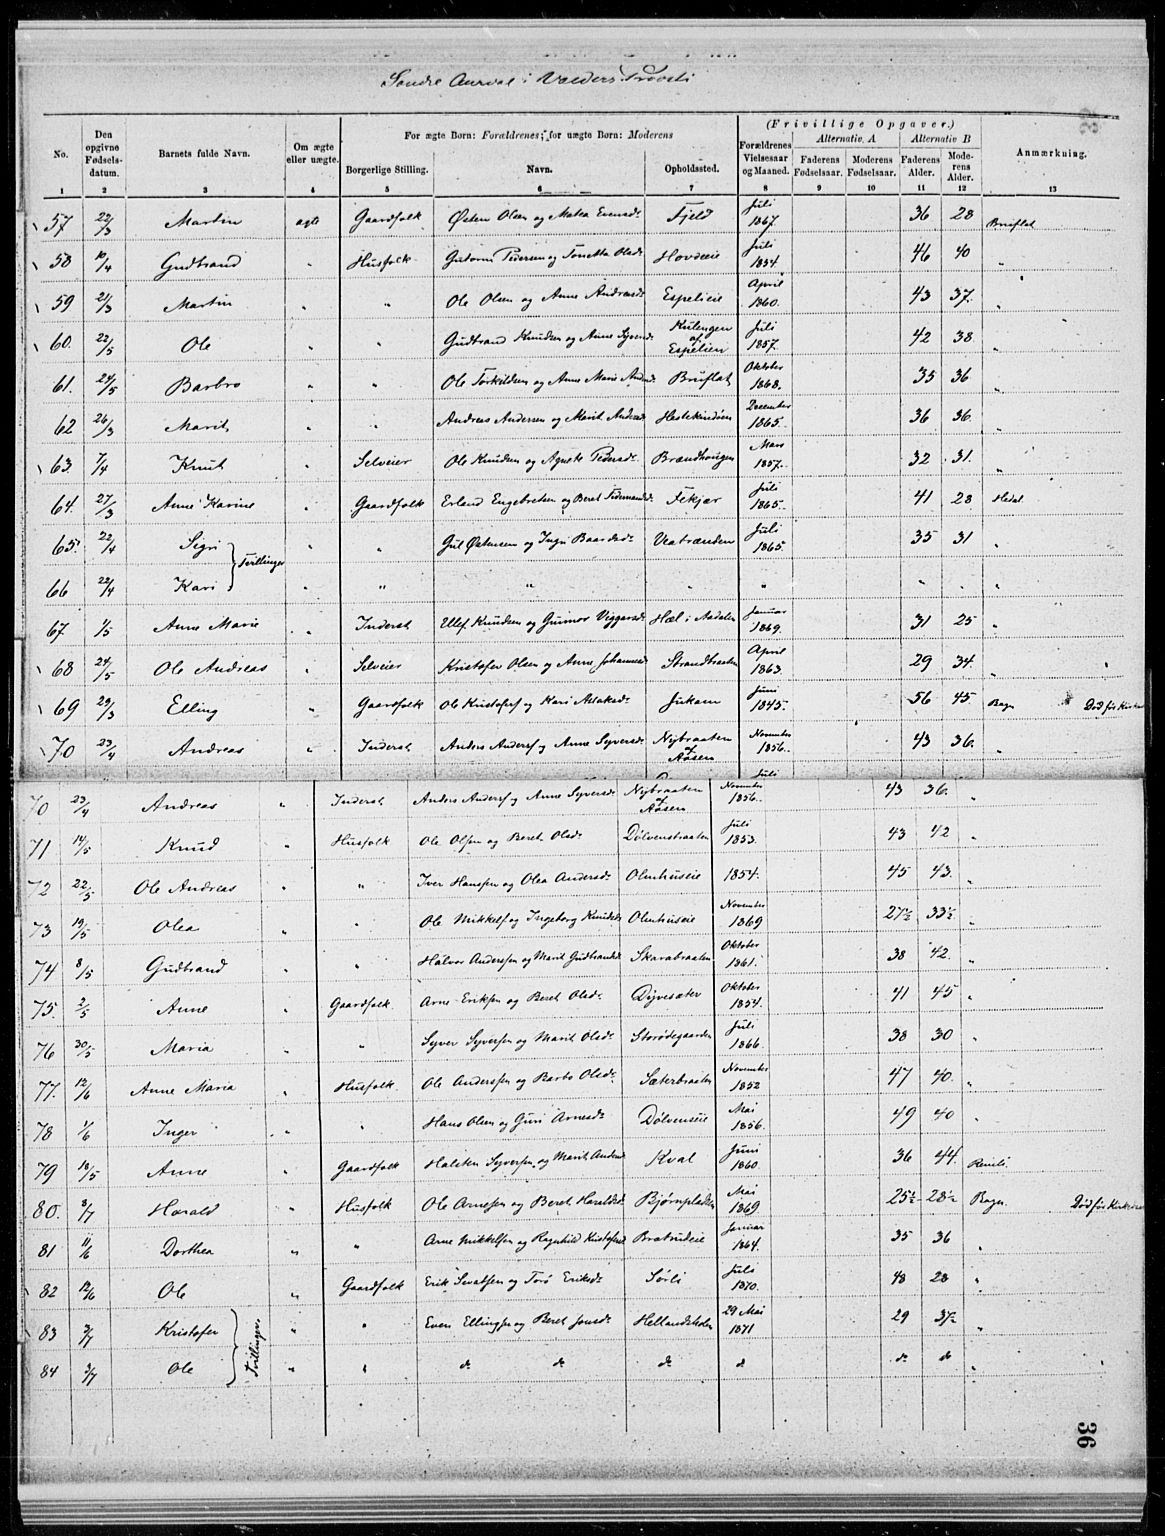 Søndre Aurdal i Valders Provsti
No.
Den opgivne Fødsels-datum.
Barnets fulde Navn.
Om ægte eller uægte.
For ægte Børn: Forældrenes; for uægte Børn: Moderens
Borgerlige Stilling.
Navn.
Opholdssted.
(Frivillige Opgaver.)
Forældrenes Vielsesaar og Maaned.
Alternativ A
Faderens Fødselsaar.
Moderens Fødselsaar.
Alternativ B
Faderens Alder.
Moderens Alder.
Anmærkning.
1 2 3 4 5 6 7 8 9 10 11 12 13
57 22/3 Martin ægte Gaardfolk Østen Olsen og Mathea Evensd. Fjeld Juli 1867. 36 28 Bruflat
58 10/4 Gudbrand " Husfolk Guttorm Pedersen og Olsd. Hovdeeie Juli 1854. 46 40 "
59 21/3 Martin " " Ole Olsen og Anne Andreasd. Espelieie April 1860. 43 37. "
60. 22/5 Ole " " Gudbrand Knudsen og Anne Syversd. Kulengen af Espelien Juli 1857. 42 38 "
61. 24/5 Barbro " " Ole Torkildsen og Anne Marie Andersd. Bruflat Oktober 1868. 35 36 "
62 26/3 Marit " " Andreas Andersen og Marit Andersd. December 1865. 36 36. "
63. 7/4 Knut " Selveier Ole Knudsen og Agnete Pedersd. Brandhaugen Mars 1857. 32 31. "
64. 27/3 Anne Karine " Gaardfolk Erland Engebretsen og Beret Fekjær Juli 1865. 41 28 Hedal
65. 22/4 Sigri " " Gul Østensen og Ingri Baardsd. Vestrænden Juli 1865. 35 31 "
Tvillinger
66 22/4 Kari " " " " " " " "
67. 1/5 Anne Marie " Inderst Ellef Knudsen og Gunnor Viggarsd. Hæl i Aadalen Januar 1869. 31 25 "
68 24/5 Ole Andreas " Selveier Kristofer Olsen og Anne Johannesd. Strandbraaten April 1863. 29 34. "
69 29/3 Elling " Gaardfolk Ole Kristofersf og Kari Aslaksd. Jukam Juni 1845. 56 45. Bagn Død før Kirken
70 23/4 Andreas " Inderst Anders Andersf og Anne Syversd. Nybraaten af Aasen November 1856. 43 36. "
Juli
70 23/4 Andreas " Inderst Anders Andersf og Anne Syversd. Nybraaten af Aasen November 1856. 43 36. "
71 14/5 Knud " Husfolk Ole Olsen og Beret Olsd. Dölvensbraaten Juli 1853. 43 42 "
72 22/5 Ole Andreas " " Iver Hanssen og Olea Andersd. Olmhuseie 1854. 45 43. "
73 19/5 Olea " " Ole Mikkelsf og Ingeborg Knudsd. Olmhuseie November 1869 27½ 33½ "
74 8/5 Gudbrand " " Halvor Anderssen og Marit Gudbrandsd. Skarabraaten Oktober 1861. 38 42. "
75. 2/5 Anne " Gaardfolk Arne Eriksen og Beret Olsd. Dyvesæter Oktober 1854. 41 45 "
76 30/5 Maria " " Syver Syversen og Marit Olsd. Storödegaarden Juli 1866. 38 30 "
77. 12/6 Anne Maria " Husfolk Ole Anderssen og Barbo Olsd. Sæterbraaten November 1852 47 40. "
78 1/6 Inger " " Hans Olsen og Guri Arnesd. Dölvenseie Mai 1856. 49 40 "
79 18/5 Anne " Gaardfolk Halsten Syversen og Marit Andersd. Kval Juni 1860. 36 44. Reinli
80. 3/7 Harald " Husfolk Ole Arnesen og Beret Haraldsd. Bjørnpladsen Mai 1869 25½ 28½ Bagn Død før Kirken
81 11/6 Dorthea " " Arne Mikkelsen og Ragnhild Kristofersd. Bratrudeie Januar 1864. 35 36 "
82 12/6 Ole " Gaardfolk Erik Svartsen og Torö Eriksd. Sørli Juli 1870. 48 28 "
83 3/7 Kristofer " " Even Ellingsen og Beret Jonsd. 29 Mai 1871 29 37½ "
Tvillinger.
84 3/7 Ole " " do do do do do do "
36